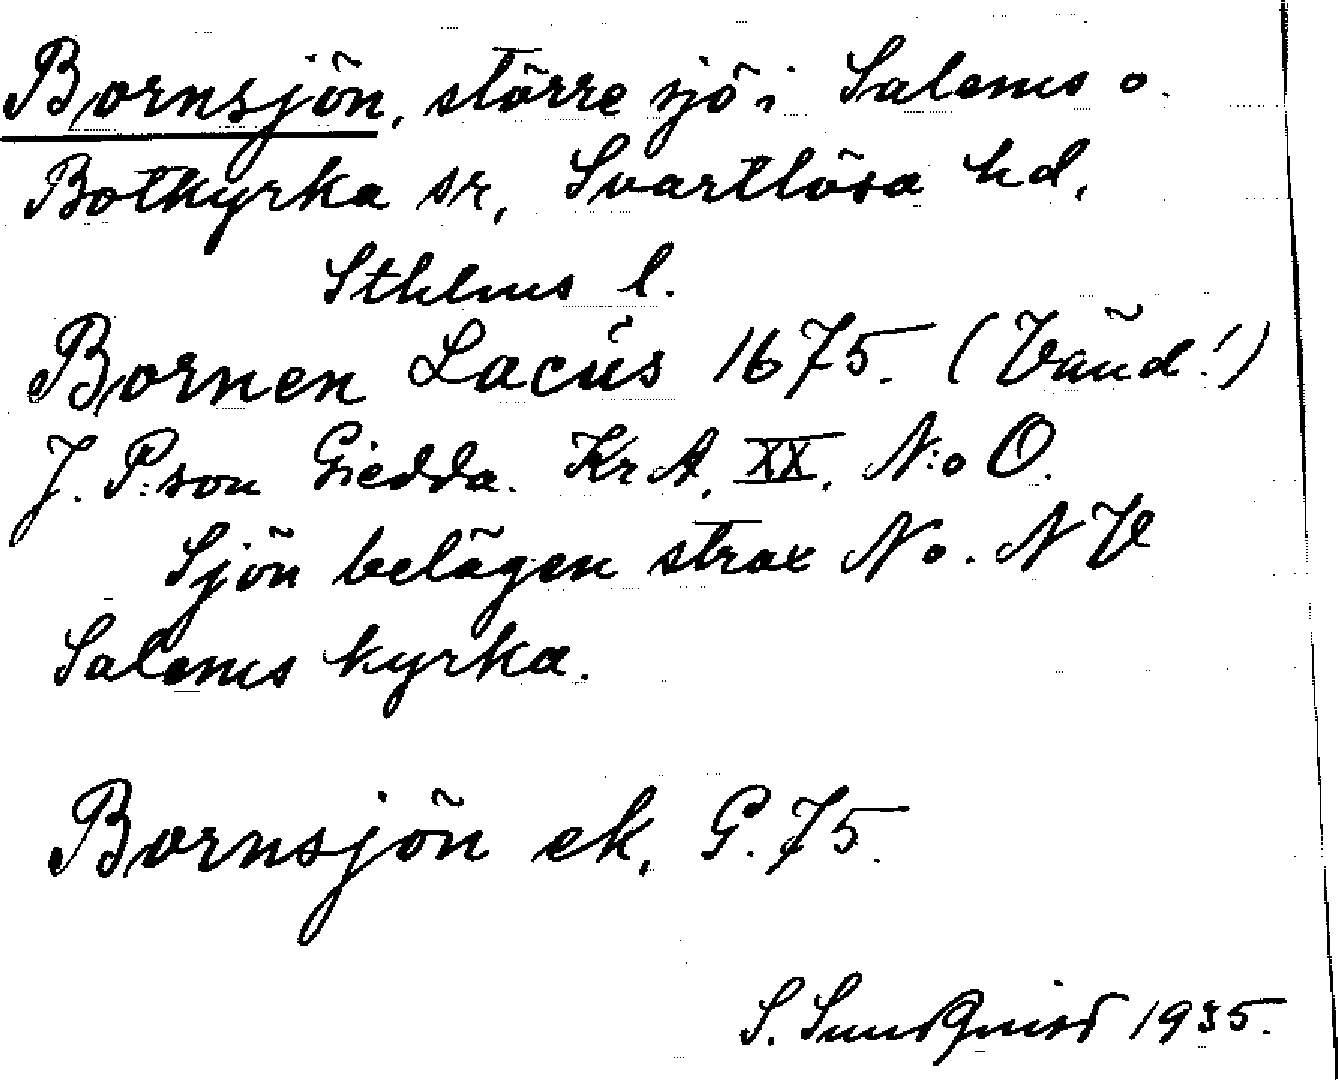 Bornsjön, större sjö i Salems o.
Botkyrka sr, Svartlösa hd,
Sthlms l.
Bornen Lacus 1675. (Vänd!)
J. P:son Giedda. Kr A. XX. N:o O.
Sjön belägen strax No. NV
Salems kyrka.
Bornsjön ek. G. 75.
S. Sundquist 1935.